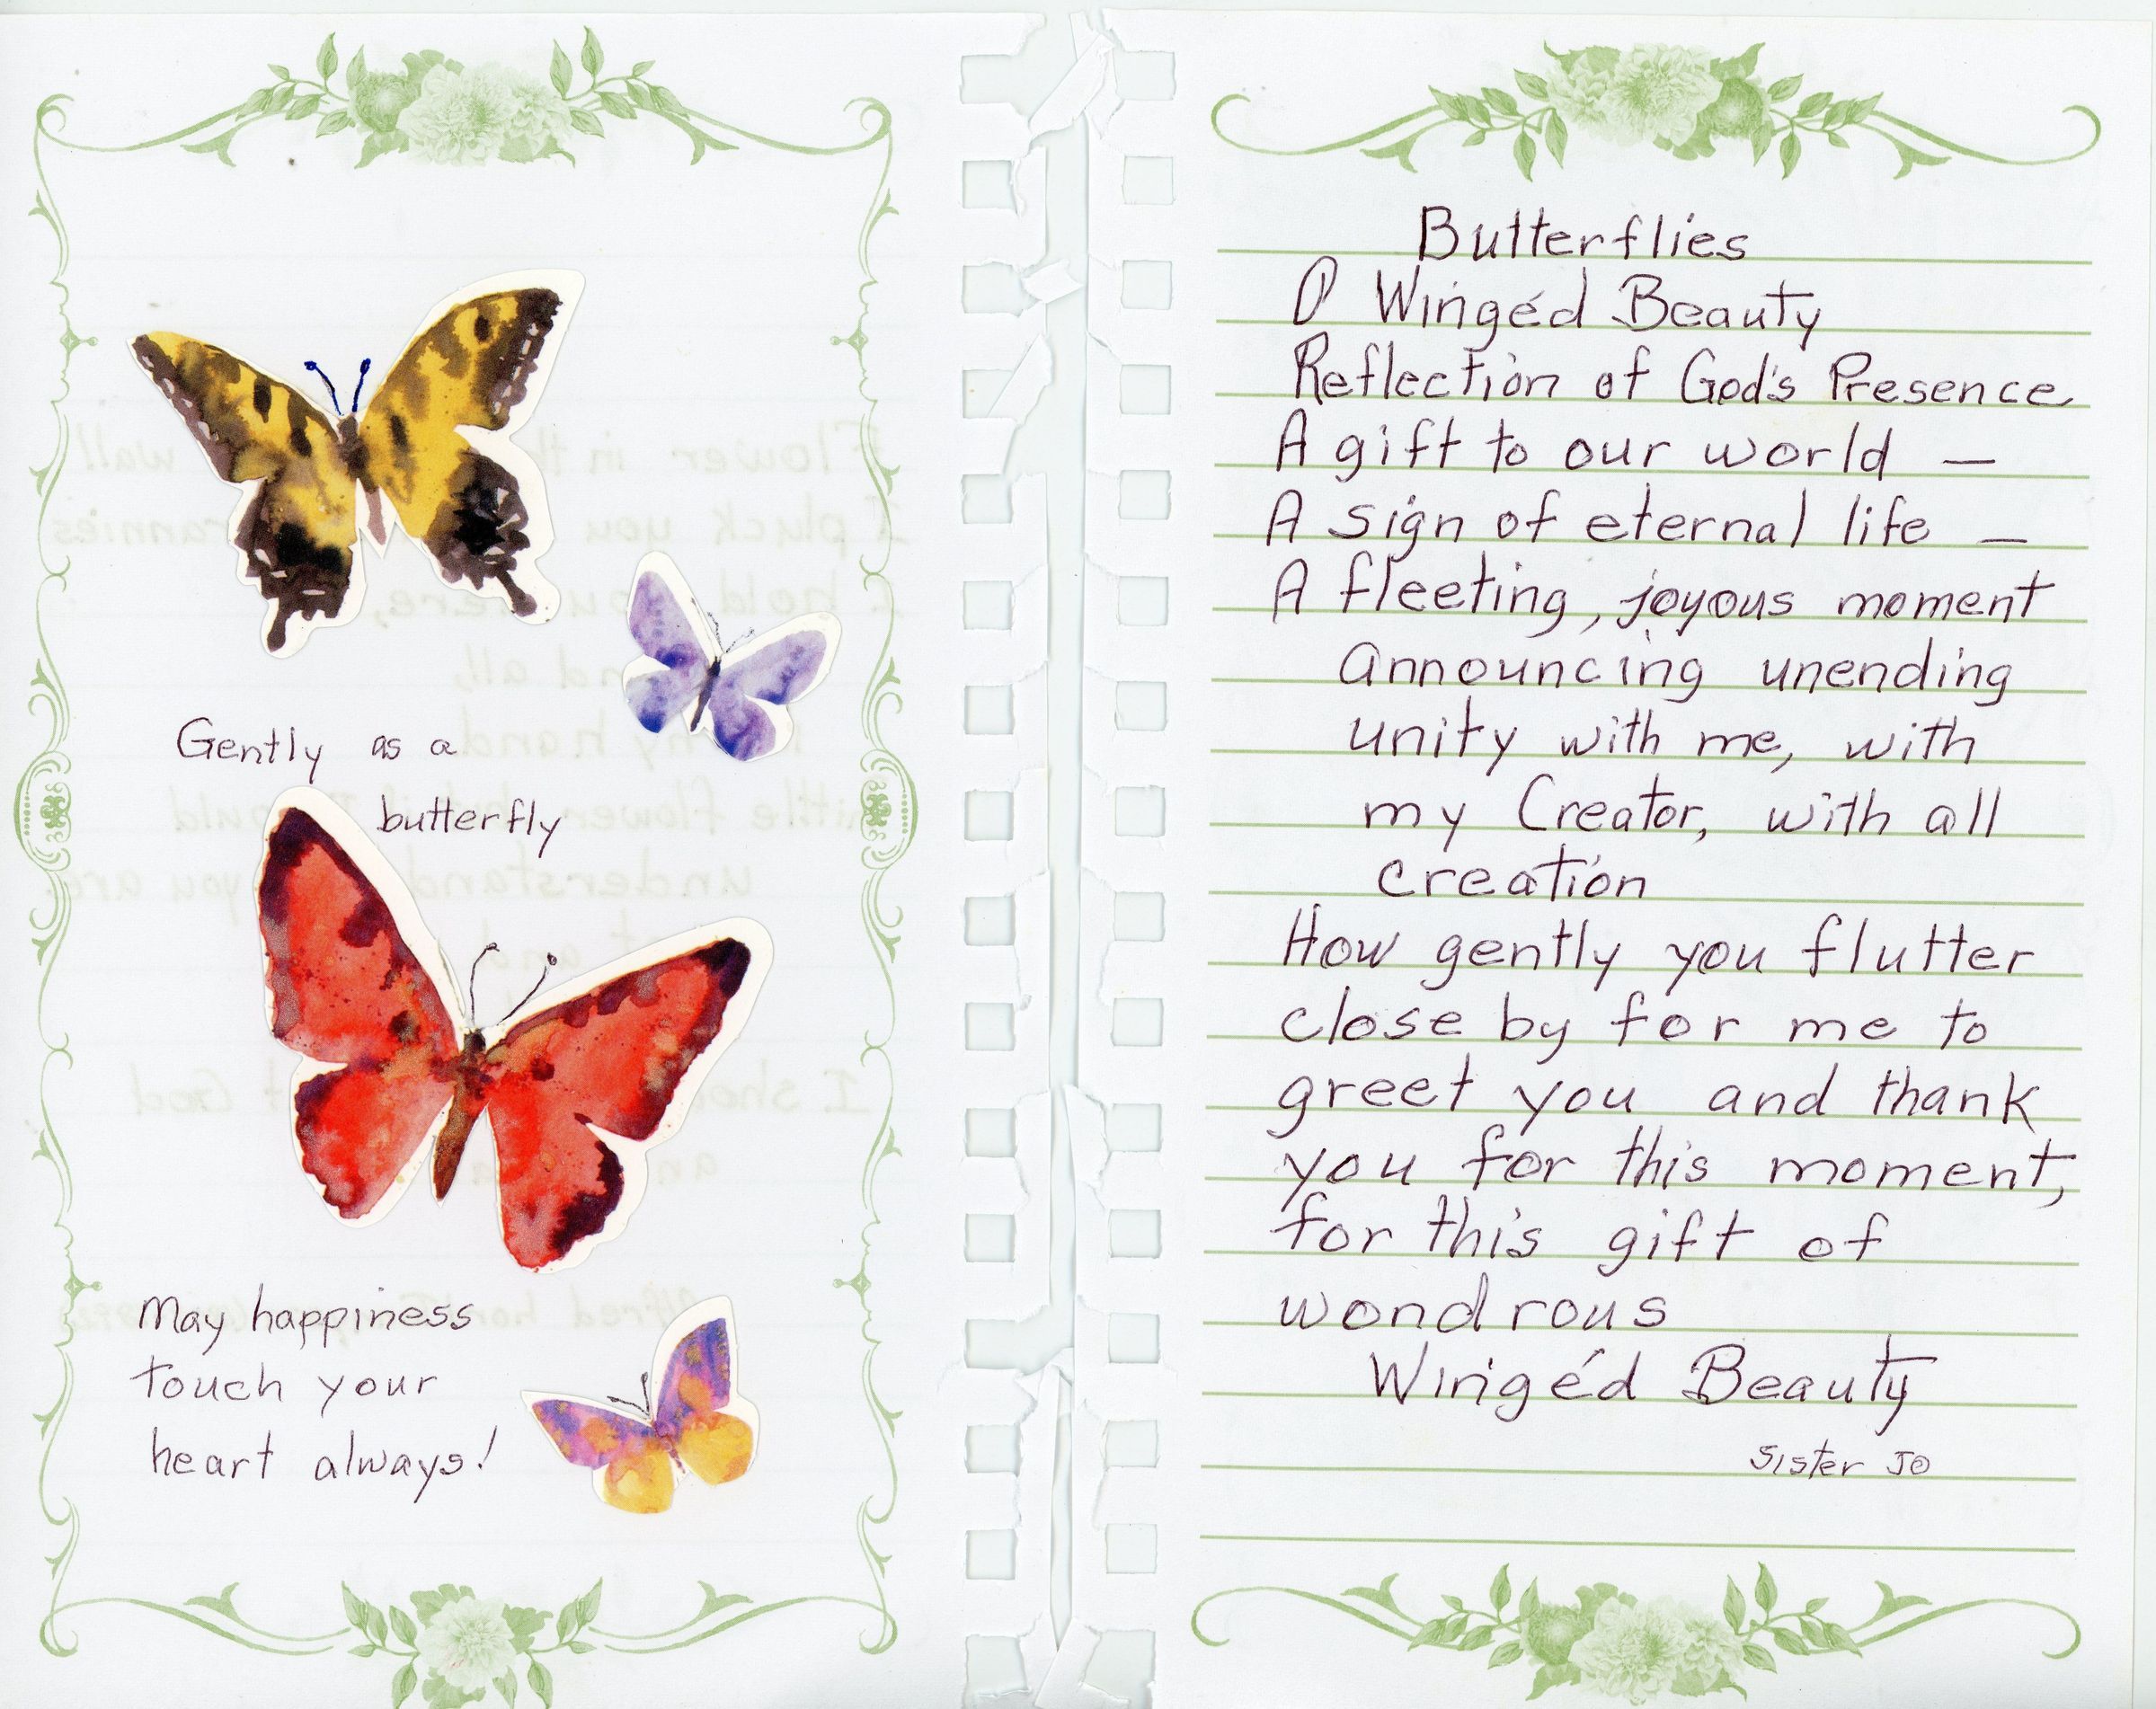 Gently as a
butterfly
May happiness
touch your
heart always!
Butterflies
O Wingéd Beauty
Reflection of God's Presence
A gift to our world —
A sign of eternal life —
A fleeting, joyous moment
announcing unending
unity with me, with
my Creator, with all
creation
How gently you flutter
close by for me to
greet you and thank
you for this moment,
for this gift of
wondrous
Wingéd Beauty
Sister JO